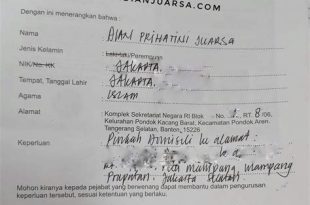 JUARSA.COM
Dengan ini menerangkan bahwa :
Nama : DIAN PRIHATINI JUARSA
Jenis Kelamin : Laki-laki/Perempuan
NIK/No. KK : JAKARTA.
Tempat, Tanggal Lahir : JAKARTA
Agama : ISLAM
Alamat : Komplek Sekretariat Negara RI Blok RT. 8/06,
Kelurahan Pondok Kacang Barat, Kecamatan Pondok Aren.
Tangerang Selatan, Banten,15226
Keperluan : Pindah Domisili ke alamat :
mampang, Mampang
Prapatan, Jakarta Selatan
Mohon kiranya kepada pejabat yang berwenang dapat membantu dalam pengurusan
keperluan tersebut, sesuai ketentuan yang berlaku.